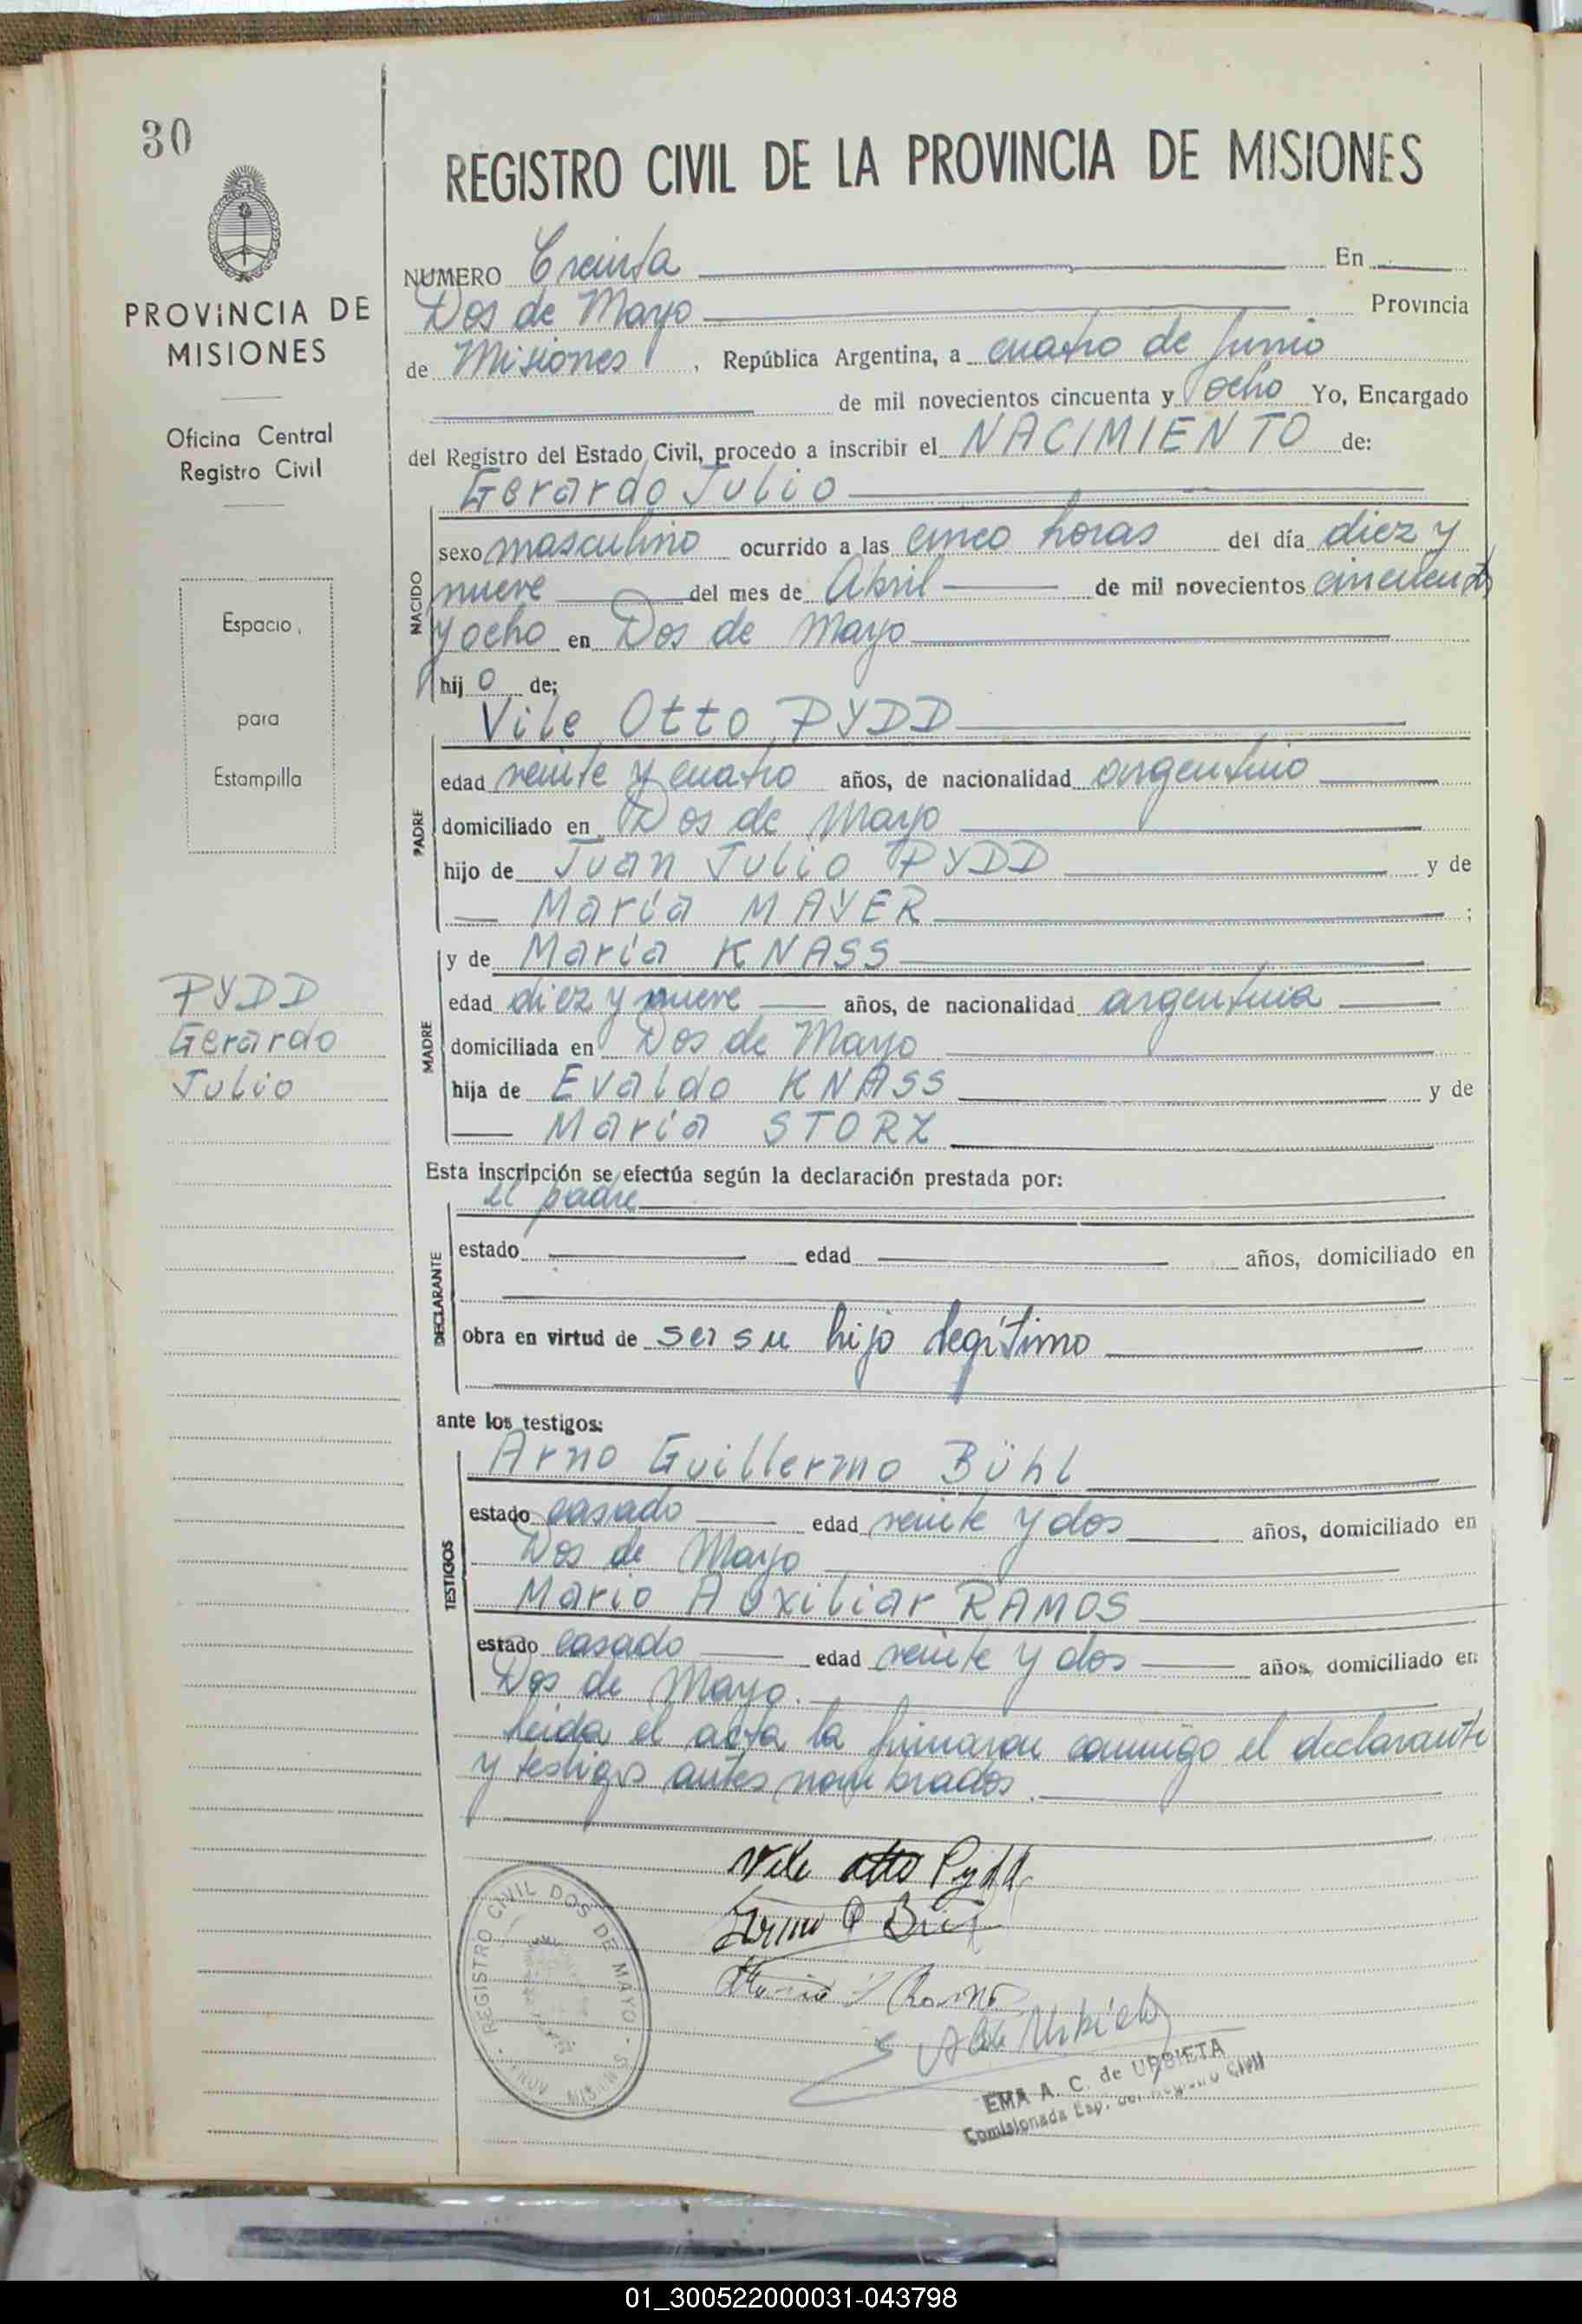 30
REGISTRO CIVIL DE LA PROVINCIA DE MISIONES
PROVINCIA DE
MISIONES
Oficina Central
Registro Civil
Espacio
para
Estampilla
PYDD
Gerardo
Julio
NUMERO Treinta En
Dos de Mayo Provincia
de Misiones, República Argentina, a cuatro de Junio
de mil novecientos cincuenta y ocho Yo, Encargado
del Registro del Estado Civil, procedo a inscribir el NACIMIENTO de:
Gerardo Julio
NACIDO
sexo masculino ocurrido a las cinco horas del día diez y
nueve del mes de Abril de mil novecientos cincuenta
y ocho en Dos de Mayo
hij o de;
Vile Otto PYDD
PADRE
edad veinte y cuatro años, de nacionalidad argentino
domiciliado en Dos de Mayo
hijo de Juan Julio PYDD y de
María MAYER ;
y de María KNASS
MADRE
edad diez y nueve años, de nacionalidad argentina
domiciliada en Dos de Mayo
hija de Evaldo KNASS y de
María STORZ
Esta inscripción se efectúa según la declaración prestada por:
el padre
DECLARANTE
estado edad años, domiciliado en
obra en virtud de ser su hijo legítimo
ante los testigos:
Arno Guillermo Bühl
TESTIGOS
estado casado edad veinte y dos años, domiciliado en
Dos de Mayo
Mario Auxiliar RAMOS
estado casado edad veinte y dos años, domiciliado en
Dos de Mayo.
Leida el acta la firmaron conmigo el declarante
y testigos antes nombrados.
Vile Otto Pydd
REGISTRO CIVIL DOS DE MAYO
EMA A. C. de URBIETA
Comisionada Esp. del Registro Civil
01_300522000031-043798